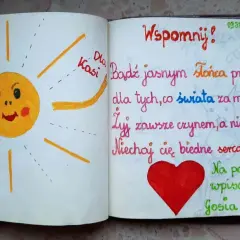 Dla
Kasi
Wspomnij!
Bądź jasnym słońca
dla tych, co świata za
Żyj zawsze czynem, a
Niechaj cię biedne
Na
Gosia